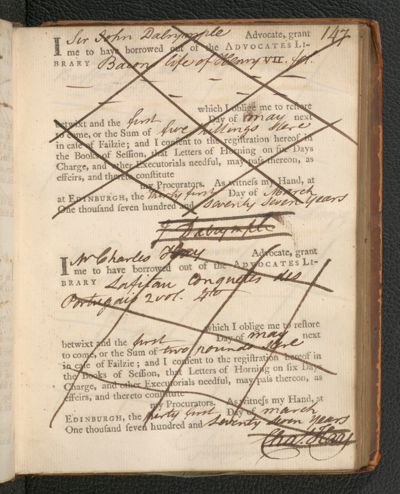 147
I Sir John Dalrymple Advocate, grant
me to have borrowed out of the ADVOCATES LI-
BRARY Bacon life of Henry VII. fol.
which I oblige me to restore
betwixt and the first Day of May next
to come, or the Sum of five shillings Stere
in case of Failzie; and I consent to the registration hereof in
the Books of Session, that Letters of Horning on six Days
Charge, and other Executorials needful, may pass thereon, as
effeirs, and thereto constitute
my Procurators. As witness my Hand, at
at EDINBURGH, the thirty first Day of March
One thousand seven hundred and Seventy Seven years
J Dalrymple
I Mr Charles Hay Advocate, grant
me to have borrowed out of the ADVOCATES LI-
BRARY Lafitau Conquetes des
Portugais 2 vol. 4to
which I oblige me to restore
betwixt and the first Day of May next
to come, or the Sum of two pounds Stere
in case of Failzie; and I consent to the registration hereof in
the Books of Session, that Letters of Horning on six Days
Charge, and other Executorials needful, may pass thereon, as
effeirs, and thereto constitute
my Procurators. As witness my Hand, at
EDINBURGH, the thirty first Day of March
One thousand seven hundred and Seventy Seven years
Cha: Hay